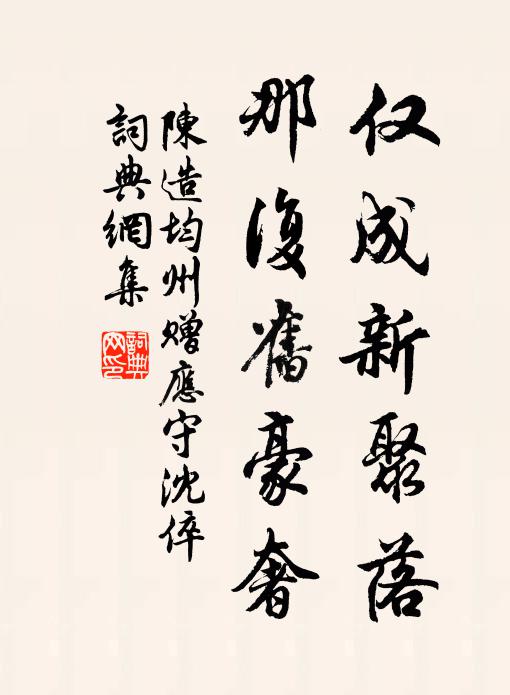 仅成新聚落
那復舊豪奢
陳造均州赠應守沈倅
詞典網集
詞典网印